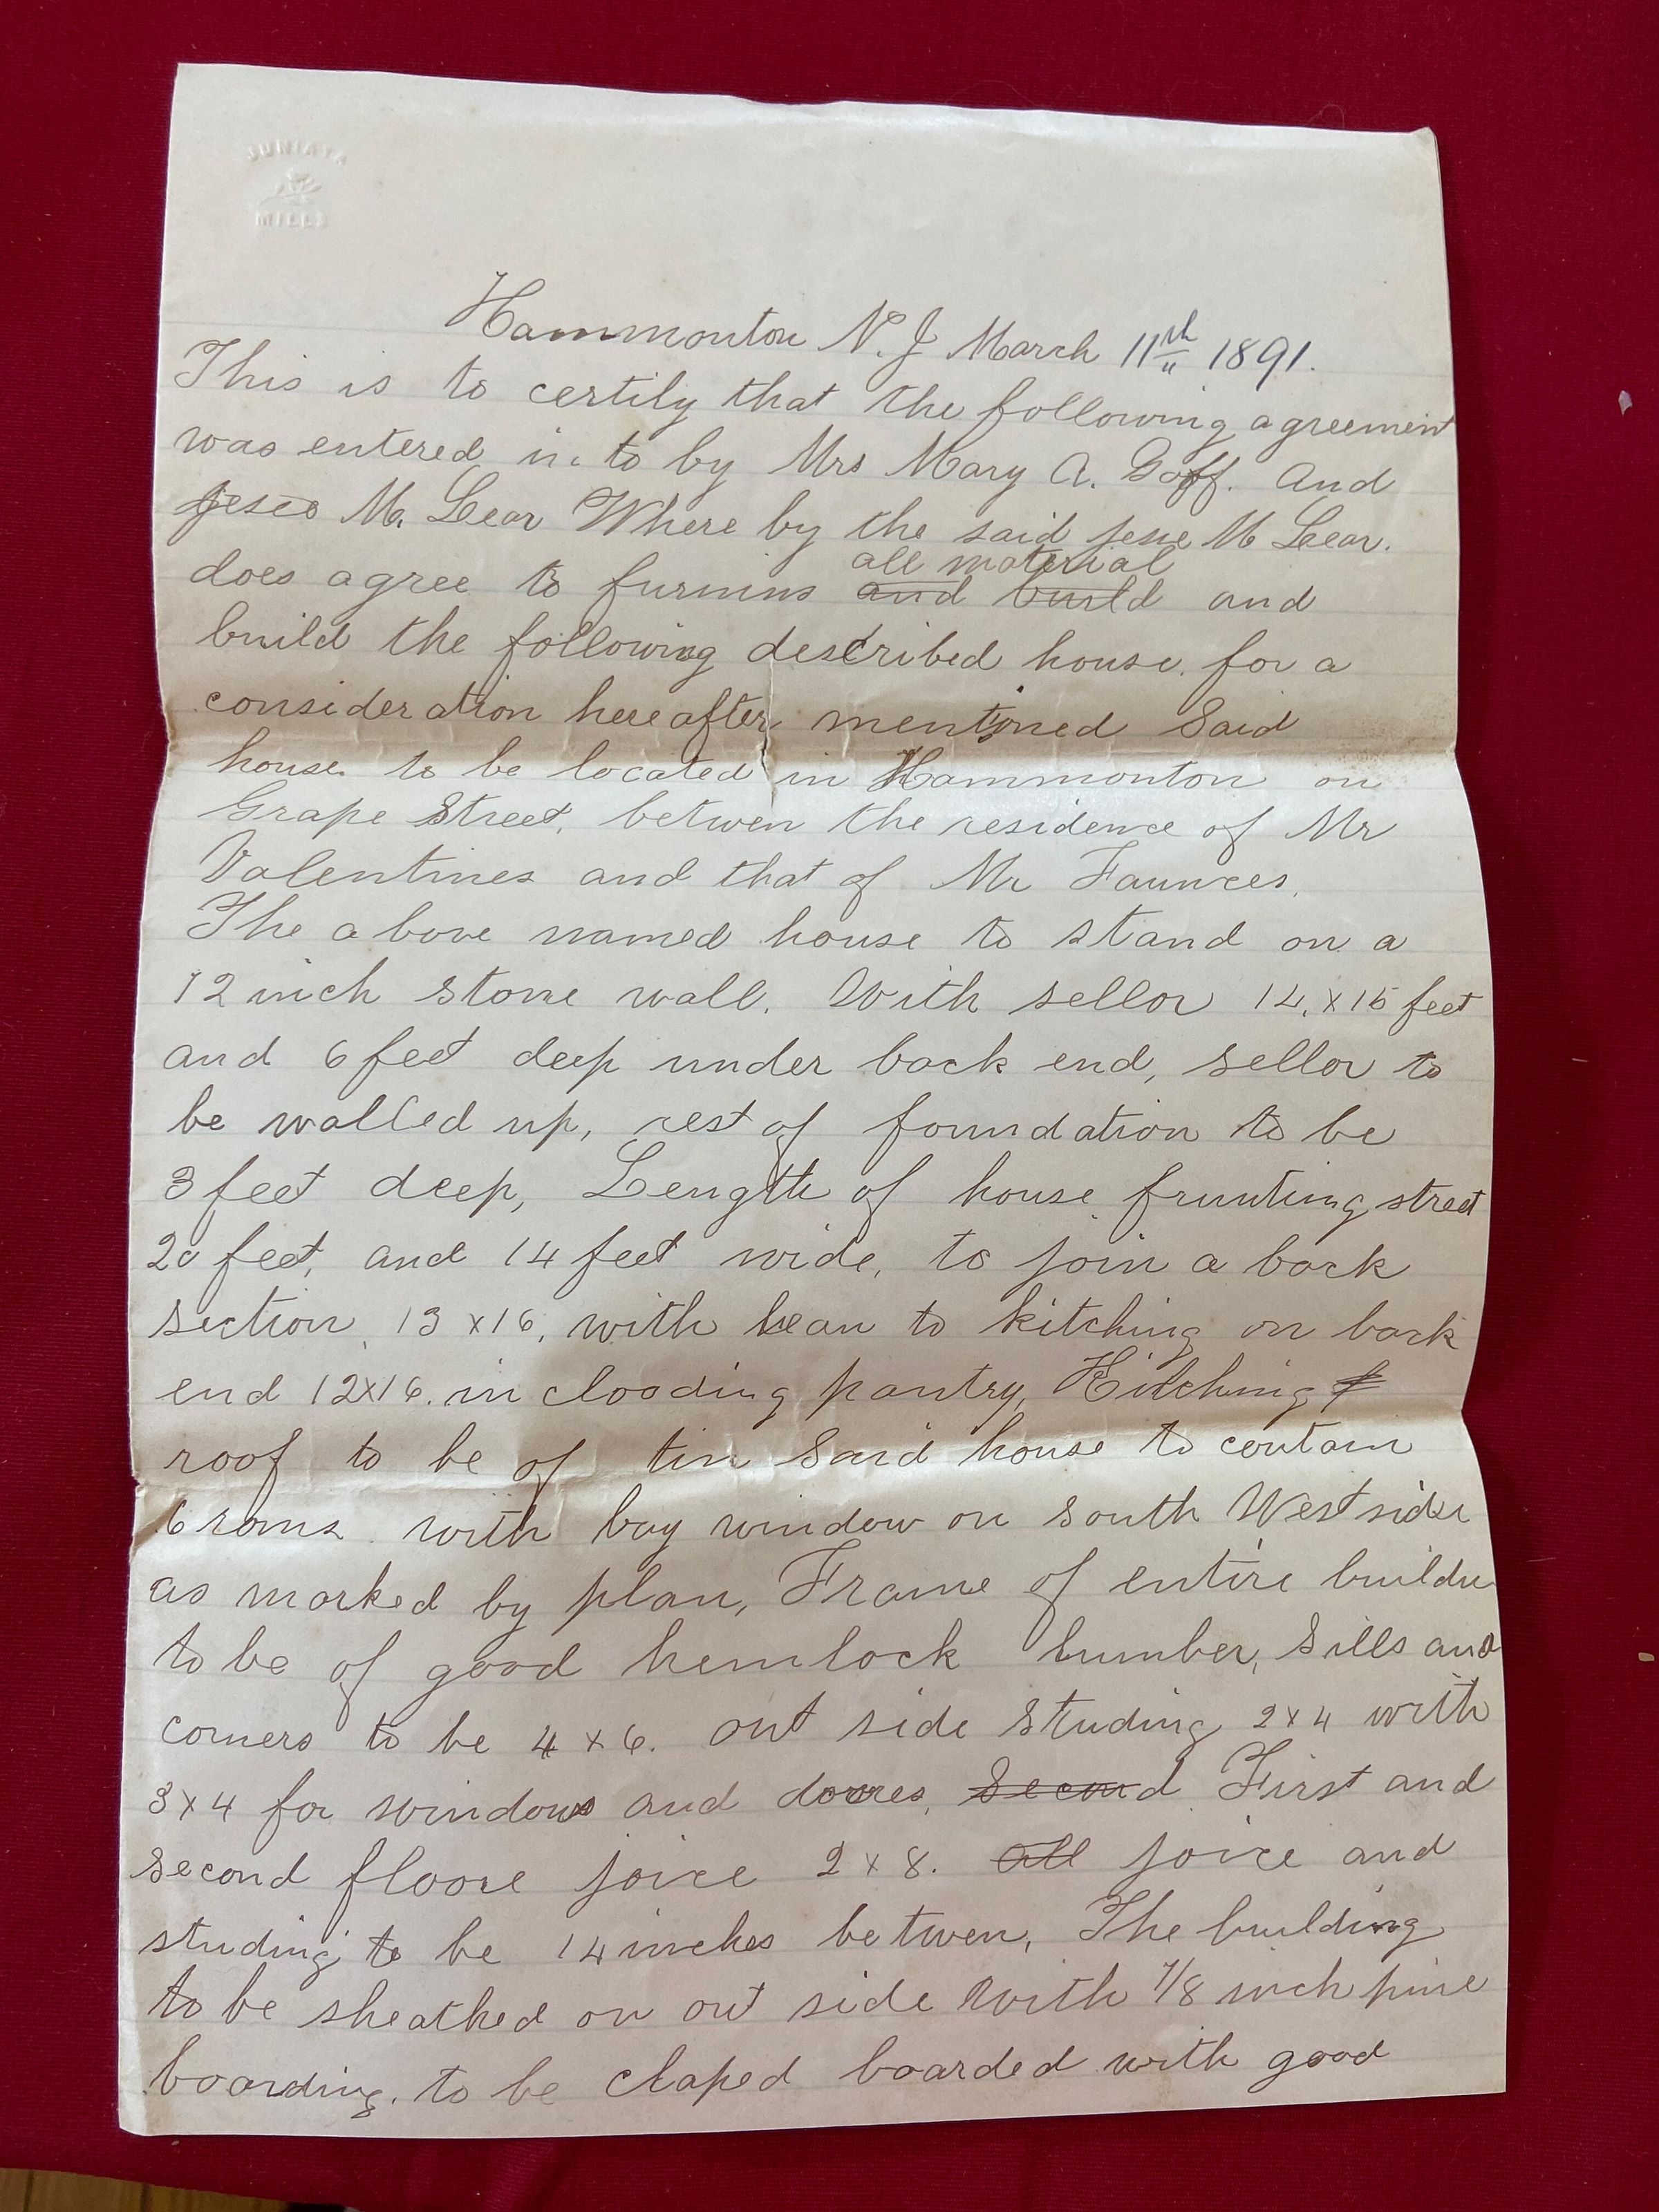 JUNIATA
MILLS
Hammonton N. J March 11th 1891.
This is to certily that the following agreement
was entered in to by Mrs Mary A. Goff. And
Jesse M. Lear Where by the said jesse M Lear.
all material
does agree to furnins and build and
build the following described house for a
consideration here after mentioned Said
house to be located in Hammonton on
Grape Street, betwen the residence of Mr
Valentines and that of Mr Faunces.
The above named house to stand on a
12 inch stone wall. With sellor 14 x 15 feet
and 6 feet deep under back end, sellor to
be walled up, rest of foundation to be
3 feet deep, Length of house frunting street
20 feet, and 14 feet wide, to join a back
section 13 x 16, with lean to kitching on back
end 12x16. in clooding pantry, Kitching
roof to be of tin Said house to contain
6 roms with bay window on South West side
as marked by plan, Frame of entire buildin
to be of good hemlock lumber, Sills and
corners to be 4 x 6. out side studing 2x4 with
3x4 for windows and doores, Second First and
second floore joice 2 x 8. All joice and
studing to be 14 inches betwen, The building
to be sheathed on out side With 7/8 inch pine
boarding. to be claped boarded with good